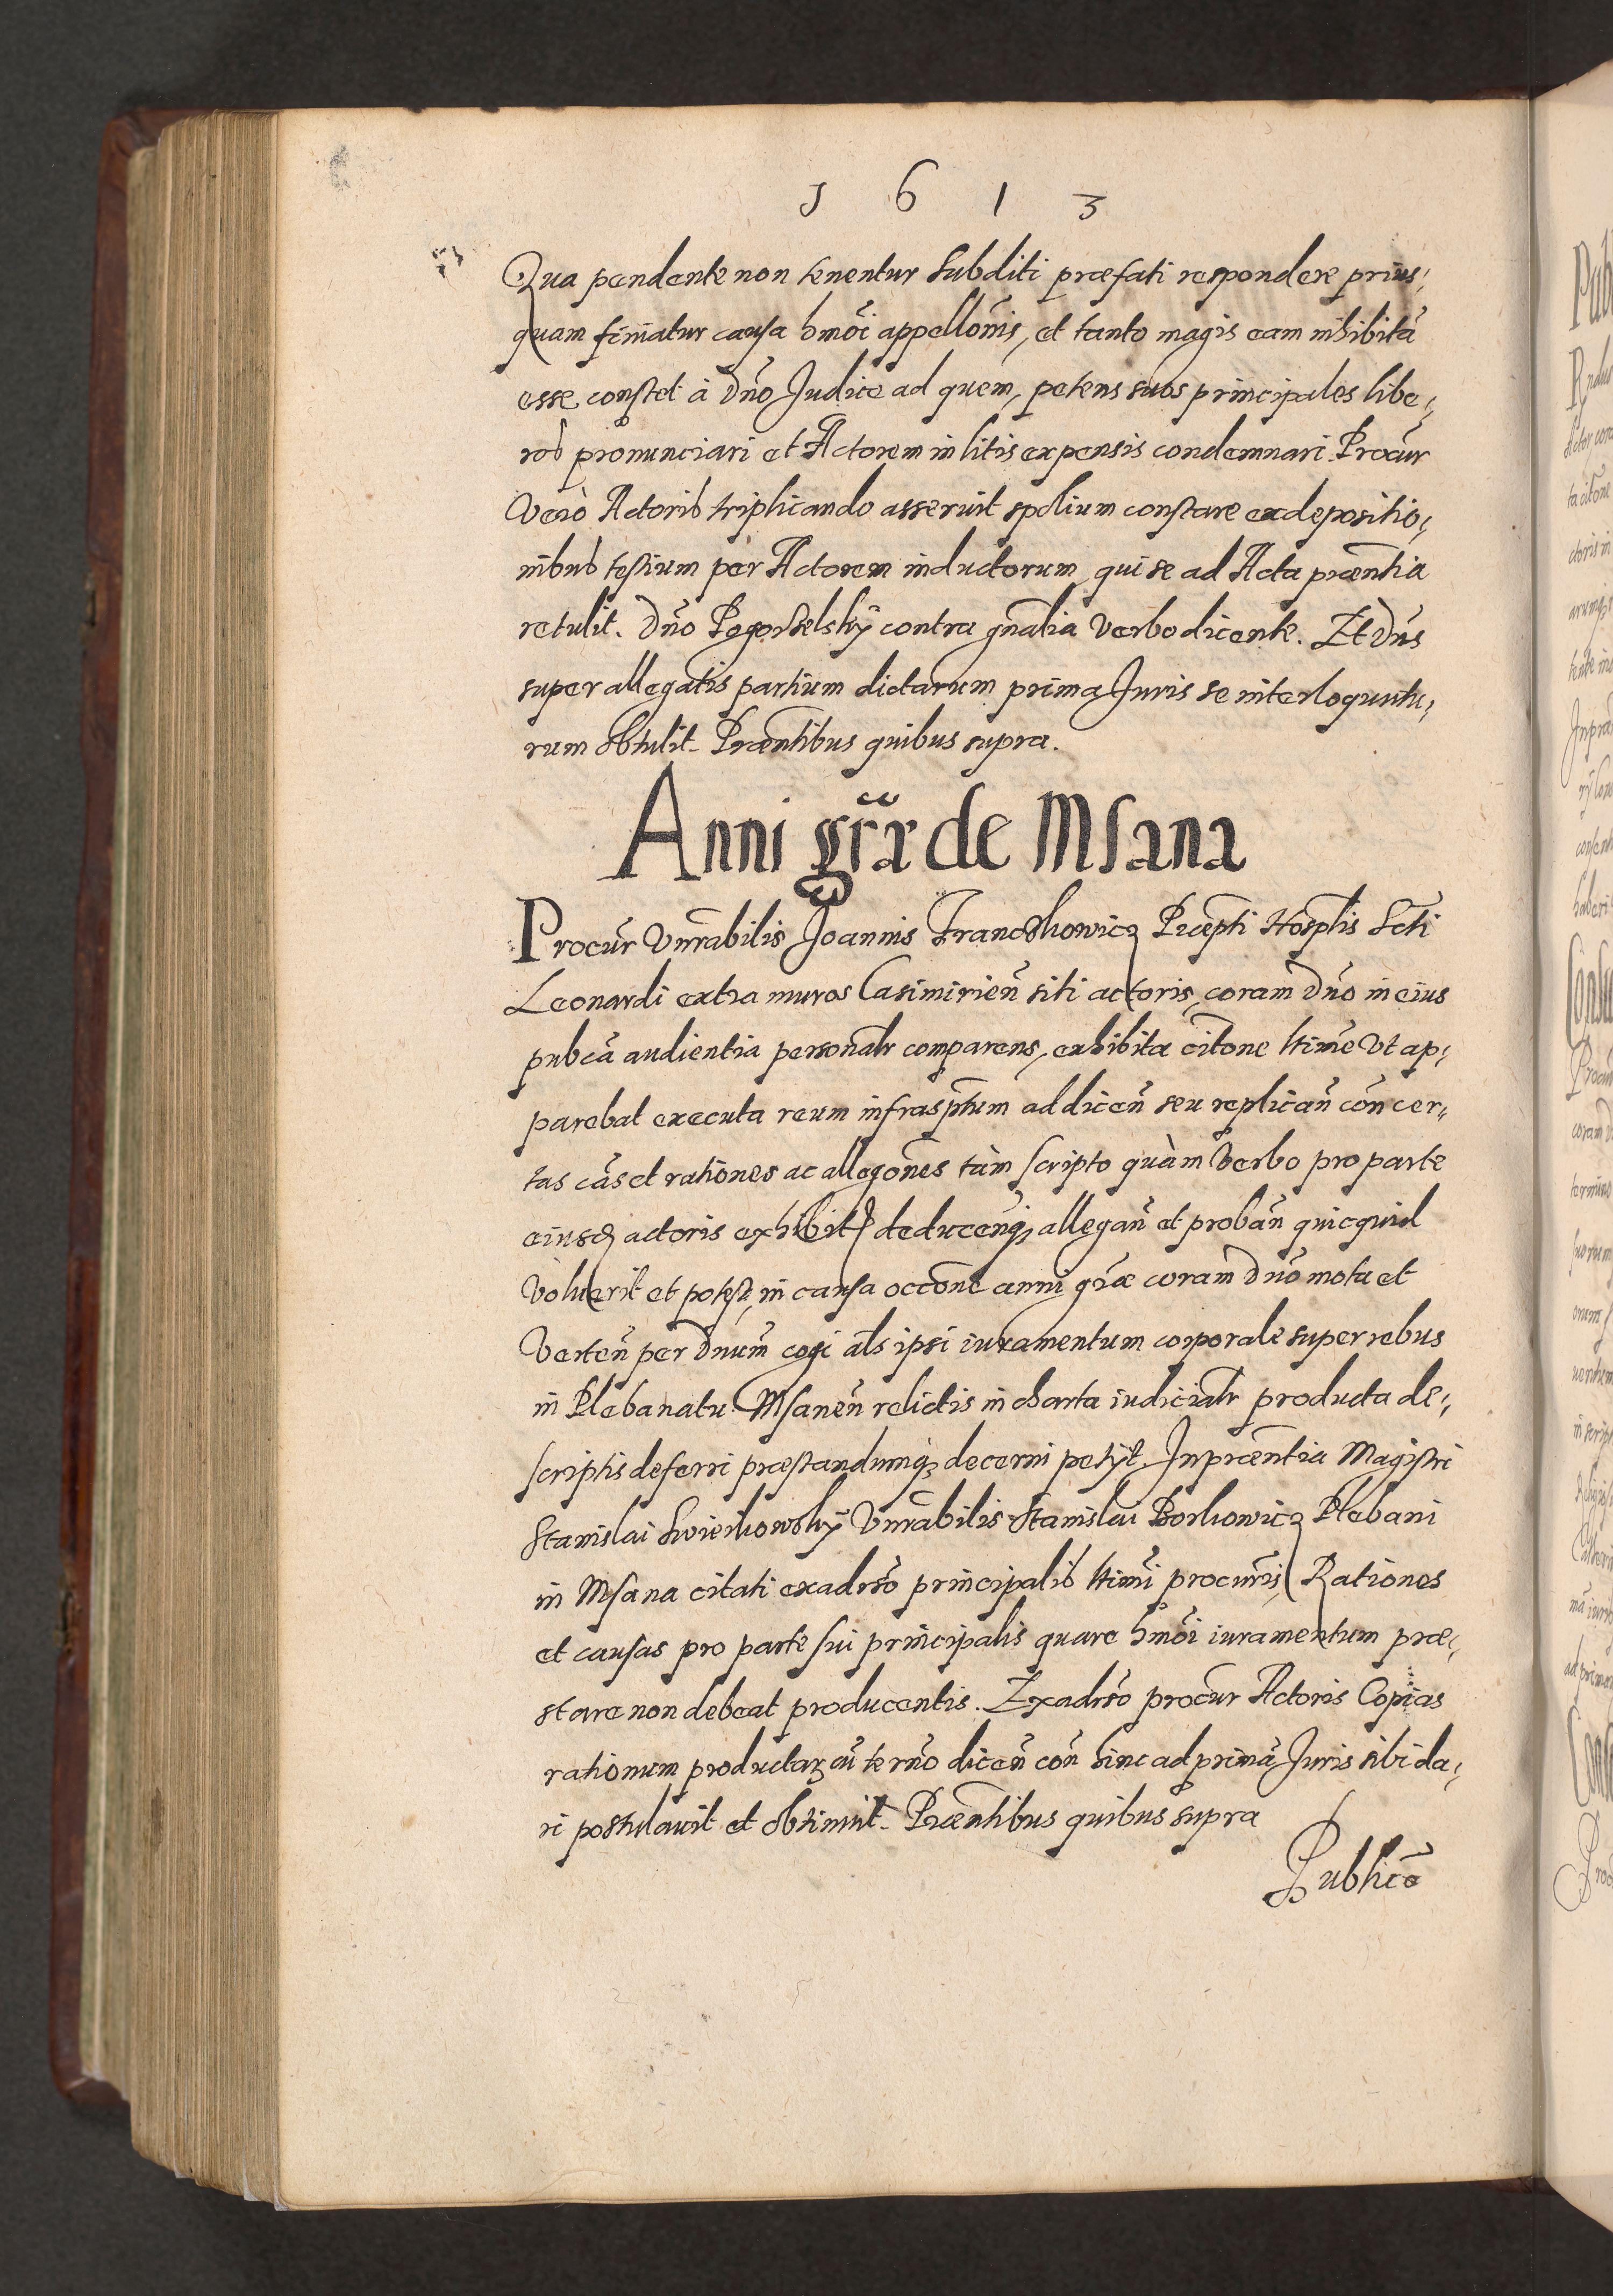 1 6 1 3
Qua pendente non tenentur subditi præfati respondere prius,
quam finiatur causa hmõi appellõnis, et tanto magis eam inhibitã
esse constet à Dño Judice ad quem, petens suos principales libe,
ros pronunciari et Actorem in litis expensis condemnari. Procur
Verò Actoris triplicando asseruit spolium constare ex depositio,
nibus testium per Actorem inductorum, qui se ad Acta præntia
retulit. Dño Pogorzelskÿ contra gñalia Verbo dicente. Et Dñs
super allegatis partium dictarum prima Juris se interloquutu,
rum obtulit. Præntibus quibus supra.
Anni grãæ de Msana
Procũr Vnrãbilis Joannis Franczkowicz Præpti Hosplis Scti
Leonardi extra muros Casimirieñ siti actoris, coram Dño in eius
pubcã audientia personalr comparens, exhibita citõne ltime Vt ap,
parebat executa reum infrasptum ad diceñ seu replicañ coñ cer,
tas cãs et rationes ac allegõnes tàm scripto quàm Verbo pro parte
eiusd actoris exhibit deducenq allegañ et probañ quicquid
Voluerit et potest, in causa occõne anni grãæ coram Dño mota et
Verteñ per Dnum cogi als ipsi iuramentum corporale super rebus
in Plebanatu Msaneñ relictis in charta iudicialr producta de,
scriptis deferri præstandumq decerni petÿt. In præntia Magistri
Stanislai Vnrãbilis Stanislai Borkowicz Plebani
in Msana citati exadrso principalis ltimi procuris, Rationes
et causas pro parte sui principalis quare hmõi iuramentum præ,
stare non debeat producentis. Exadrso procur Actoris Copias
rationum productaz cũ terño diceñ coñ hinc ad primã Juris sibi da,
ri postulavit et obtinuit. Præntibus quibus supra
Publicõ